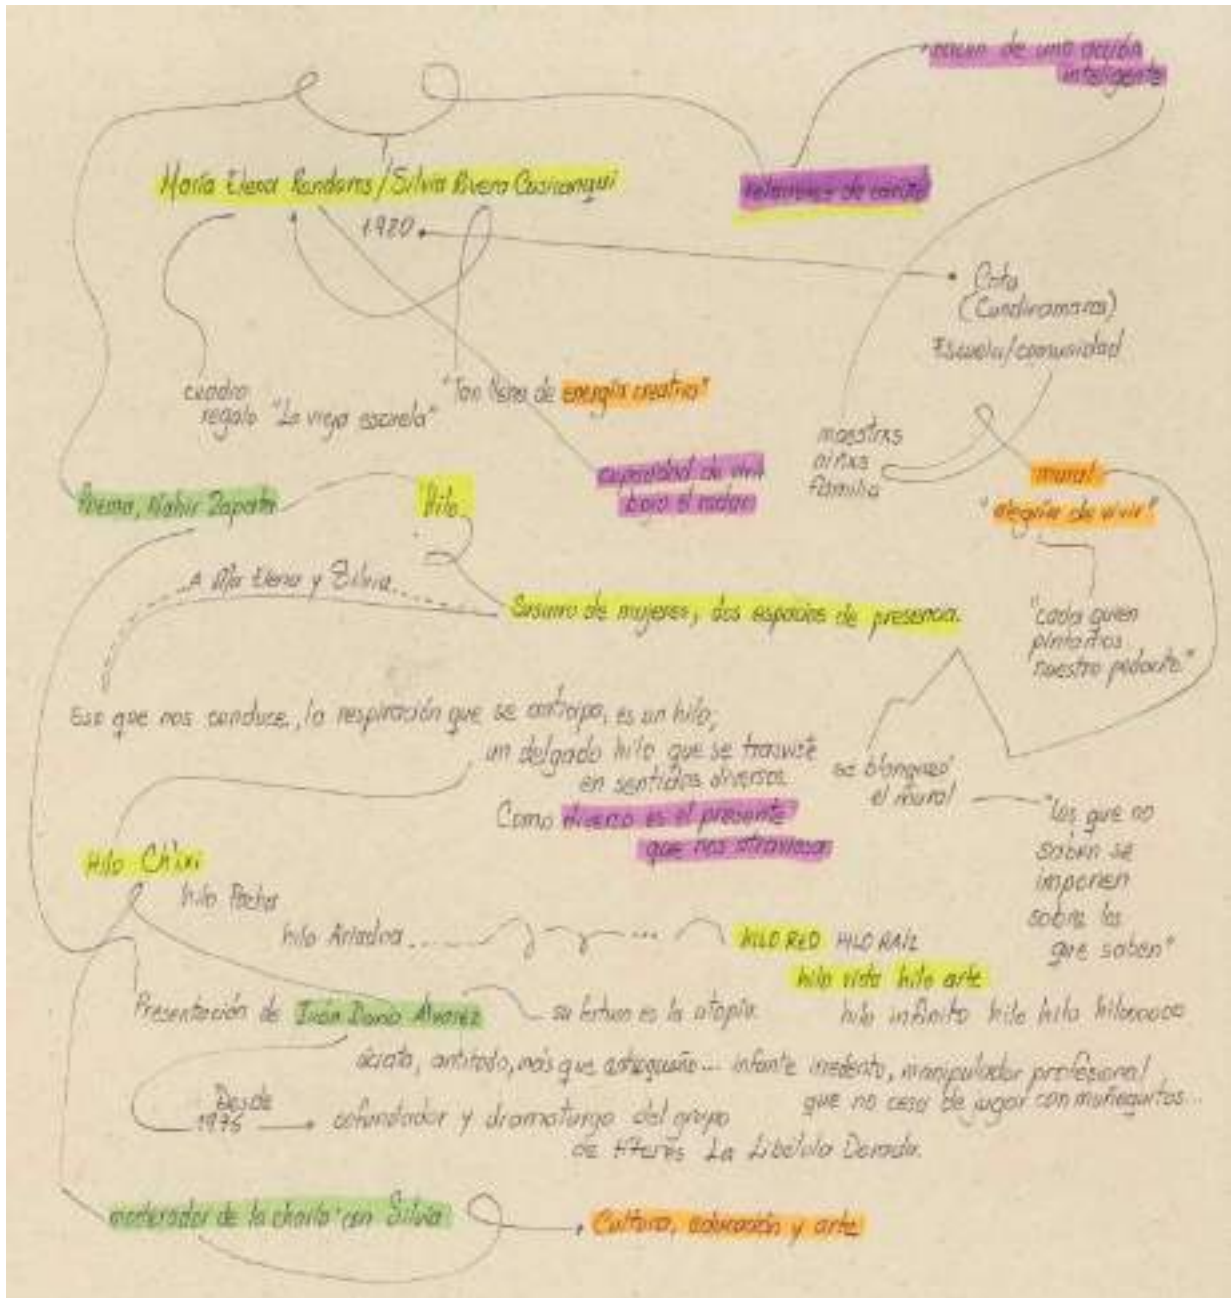 nacen de una acción
inteligente
María Elena Ronderos / Silvia Rivera Cusicanqui
relaciones de cariño
1980
Cota
(Cundinamarca)
Escuela/comunidad
cuadro
regalo "La vieja escuela"
"Tan llena de energía creativa"
maestrxs
niñxs
familia
capacidad de vivir
bajo el radar
mural
"alegría de vivir"
Poema, Nahir Zapata
Hilo
... A Ma Elena y Silvia...
Susurro de mujeres, dos espacios de presencia.
"cada quien
pintamos
nuestro pedacito"
Eso que nos conduce, la respiración que se anticipa, es un hilo,
un delgado hilo que se trasviste
en sentidos diversos
se blanqueó
el mural
Como diverso es el presente
que nos atraviesa
"los que no
saben se
imponen
sobre los
que saben"
Hilo Ch'ixi
hilo Pacha
hilo Ariadna ..... ... HILO RED HILO RAÍZ
hilo vida hilo arte
Presentación de Iván Darío Álvarez su es la utopía. hilo infinito hilo hilo hilooooo
ácrata, antitodo, más que antioqueño... infante irredento, manipulador profesional
que no cesa de jugar con muñequitos...
Desde
1976 cofundador y dramaturgo del grupo
de títeres La Libélula Dorada.
moderador de la charla con Silvia
Cultura, educación y arte